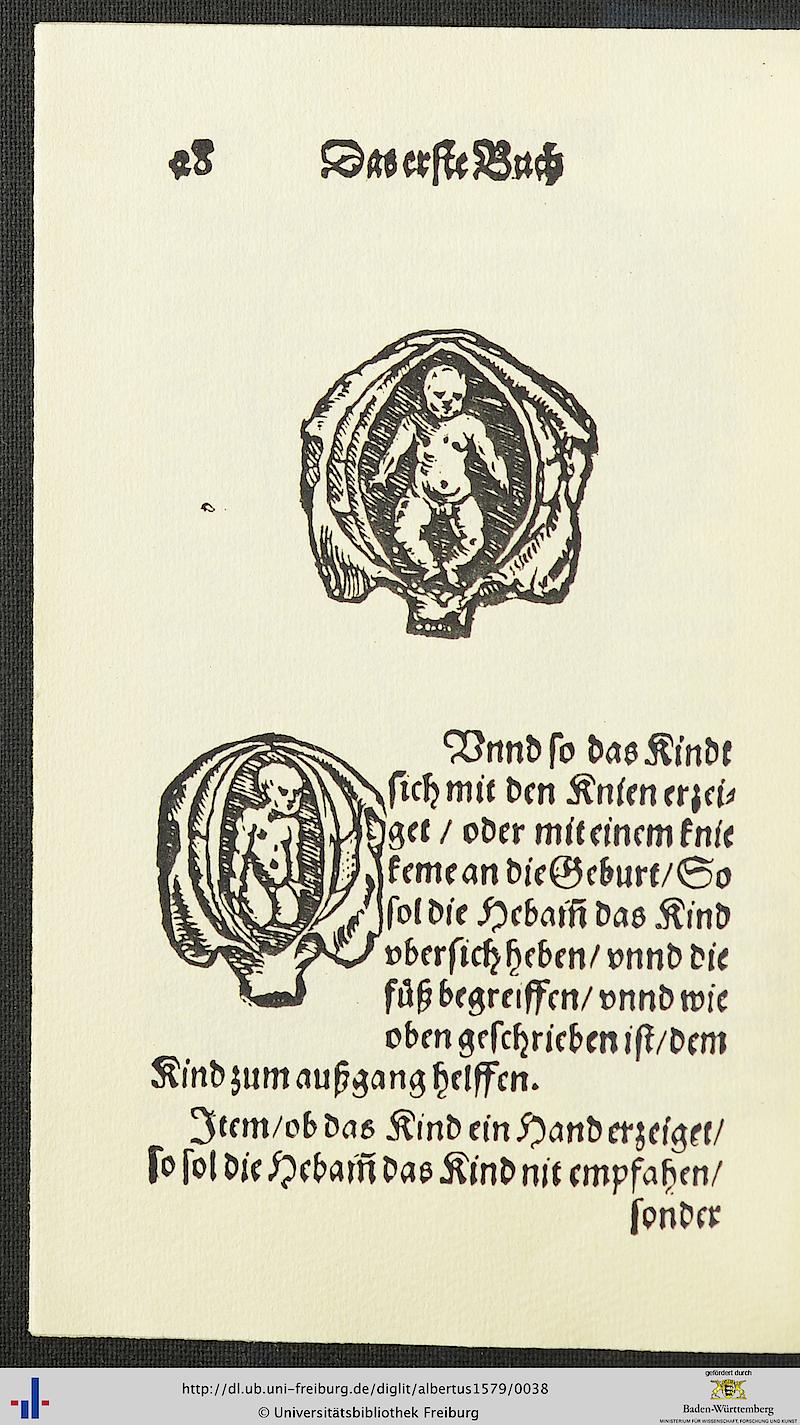 28 Das erste Buch
Vnnd so das Kindt
sich mit den Knien erzei⸗
get / oder mit einem knie
keme an die Geburt/ So
sol die Hebam̃ das Kind
vbersich heben/ vnnd die
füß begreiffen/ vnnd wie
oben geschrieben ist/ dem
Kind zum außgang helffen.
Item/ ob das Kind ein Hand erzeiget/
so sol die Hebam̃ das Kind nit empfahen/
sonder
http://dl.ub.uni-freiburg.de/diglit/albertus1579/0038
© Universitätsbibliothek Freiburg
gefördert durch
Baden-Württemberg
MINISTERIUM FÜR WISSENSCHAFT, FORSCHUNG UND KUNST